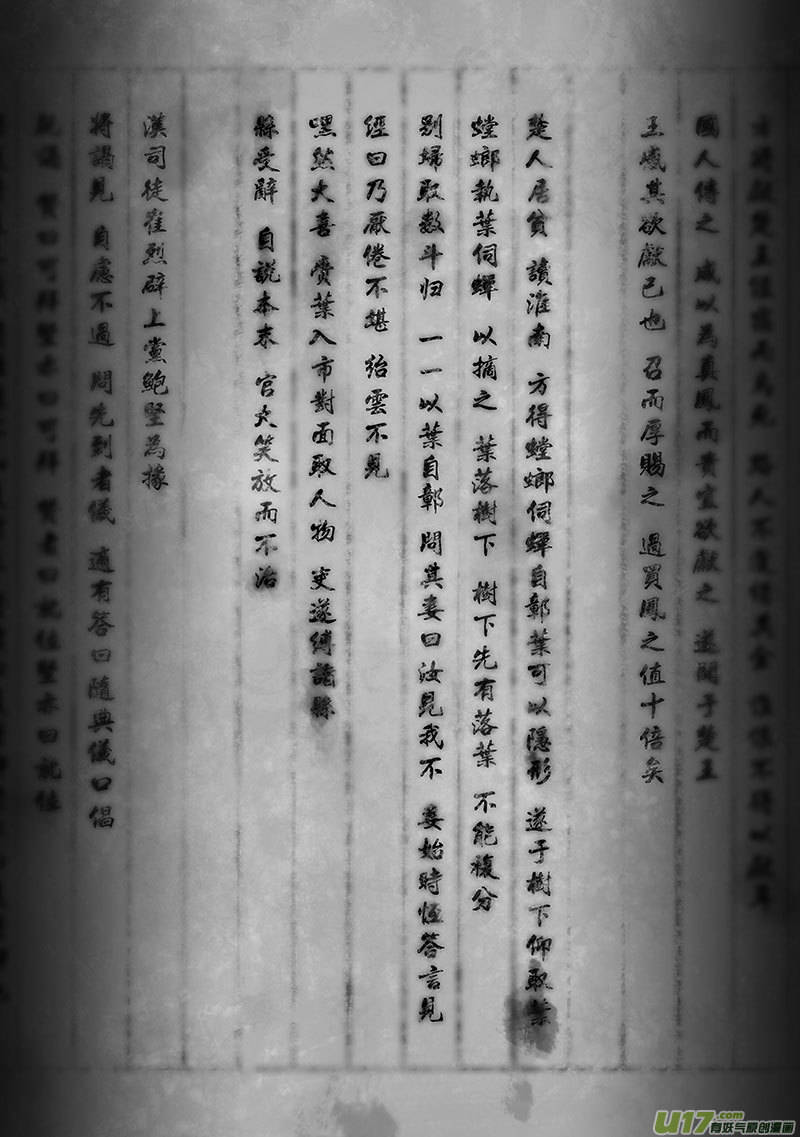 國人傳之 咸以為真鳳而貴 宜欲獻之 遂聞于楚王
王感其欲獻己也 召而厚賜之 過買鳳之值十倍矣
楚人居貧 讀淮南 方得螳螂伺蟬自鄣葉可以隱形 遂于樹下仰取葉
螳螂執葉伺蟬 以摘之 葉落樹下 樹下先有落葉 不能複分
别婦取数斗归 一一以葉自鄣 問其妻曰汝見我不 妻始時恆答言見
經日乃厭倦不堪 紿雲不見
嘿然大喜 賫葉入市對面取人物 吏遂縛詣縣
縣受辭 自説本末 官大笑放而不治
漢司徒崔烈辟上黨鮑堅為掾
將謁見 自慮不過 問先到者儀 適有答曰隨典儀口倡
既謁 贊曰可拜堅亦曰可拜 贊者曰就位堅亦曰就位
U17.com
有妖气原创漫画